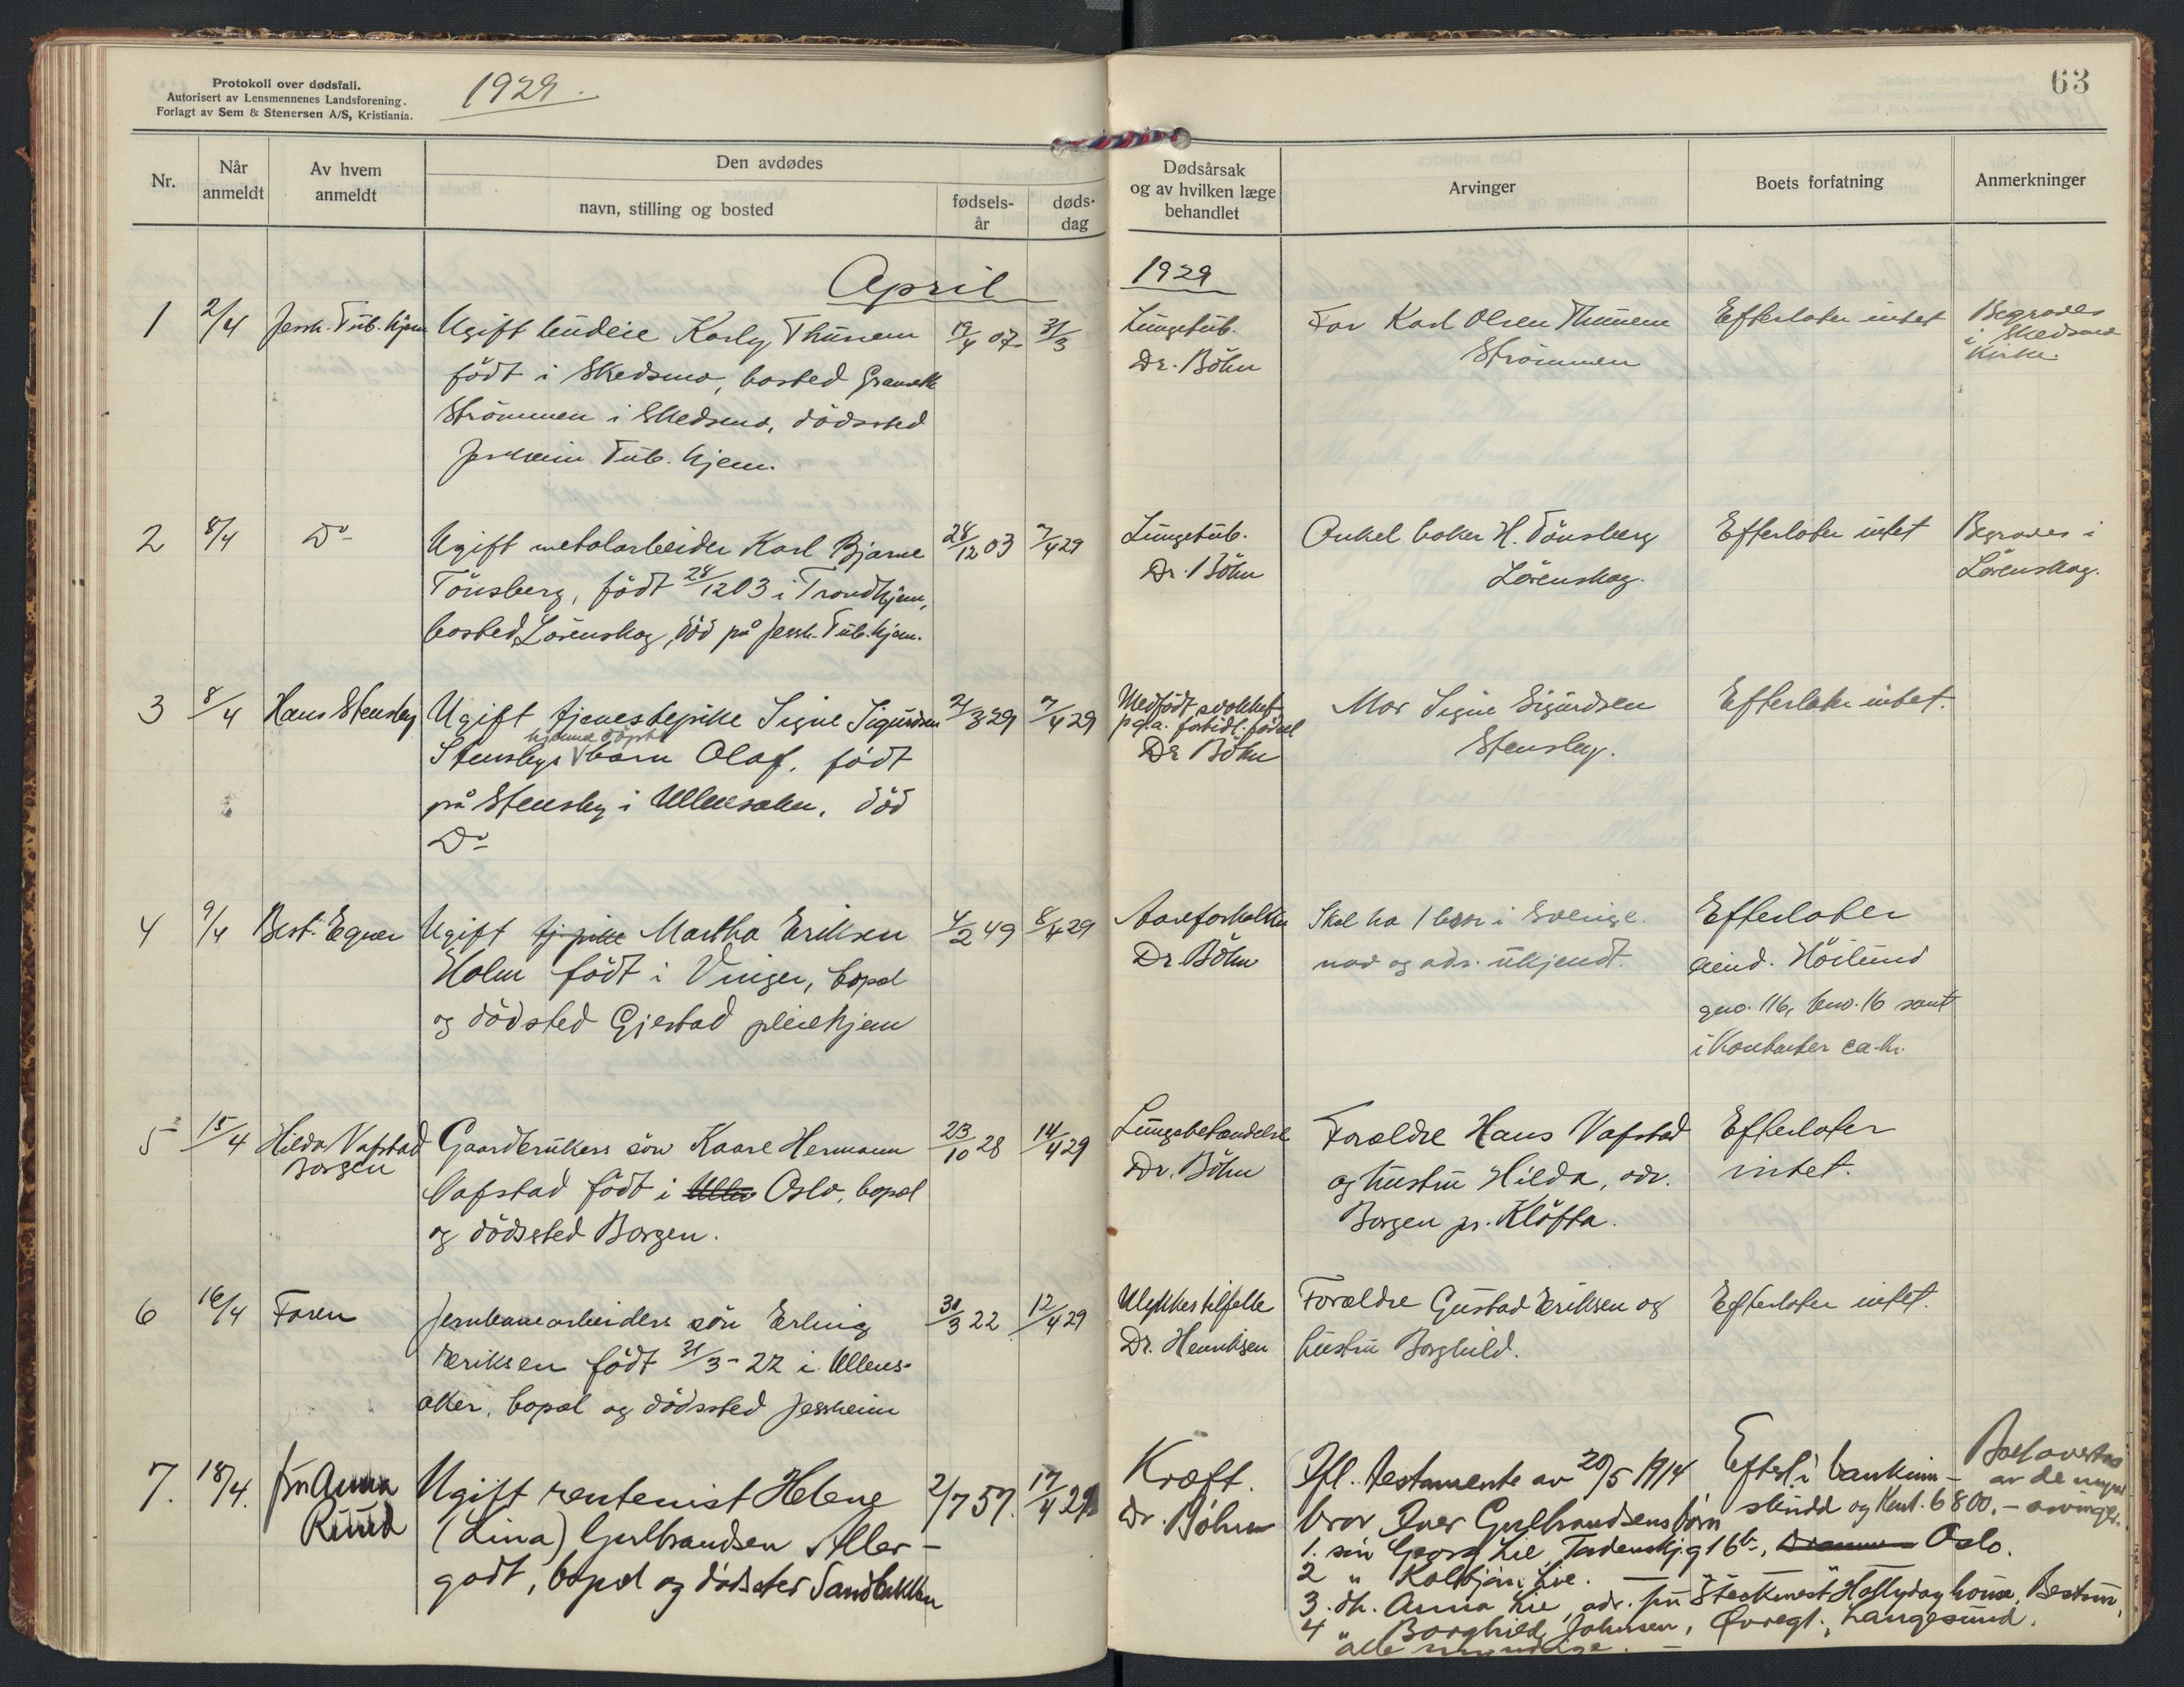 Protokoll over dødsfall.
Autorisert av Lensmennenes Landsforening.
Forlagt av Sem & Stenersen A/S, Kristiania.
1929.
63
Nr.
Når anmeldt
Av hvem anmeldt
Den avdødes
navn, stilling og bosted
fødsels-år
døds-dag
Dødsårsak og av hvilken læge behandlet
Arvinger
Boets forfatning
Anmerkninger
April
1929
1
2/4
Jessh. Tub. hjem
Ugift budeie Karly Thunem
født i Skedsmo, bosted
Strømmen i Skedsmo, dødssted
Jessheim Tub. hjem.
19/4 07.
31/3
Lungetub.
Dr. Bøhn
Far Karl Olsen Thunem
Strømmen
Efterlater intet
Begraves
i Skedsmo
Kirke.
2
8/4
Do
Ugift metalarbeider Karl Bjarne
Tønsberg, født 28/12 03 i Trondhjem,
bosted Lørenskog, død på Jessh. Tub. hjem.
28/12 03
7/4 29
Lungetub.
Dr. Bøhn
Onkel baker H. Tønsberg
Lørenskog.
Efterlater intet
Begraves i
Lørenskog.
3
8/4
Hans Stensby
Ugift tjenestepike Signe Sigurdsen
hjemmedøpte
Stensbys barn Olaf, født
på Stensby i Ullensaker, død
Do
21/3 29
7/4 29
Medfødt svakhet
pga. fortidl. fødsel
Dr Bøhn
Mor Signe Sigurdsen
Stensby.
Efterlater intet.
4
9/4
Best. Egner
Ugift tj. pike Martha Eriksen
Holm født i Vinger, bopæl
og dødsted Gjestad pleiehjem
4/2 49
8/4 29
Aareforkalkn
Dr. Bøhn
Skal ha 1 bror i Sverige.
navn og adr. ukjendt.
Efterlater
eiend. Høilund
gno. 116, bno. 16 samt
i Kontanter ca. kr.
5
15/4
Hilda Vafstad
Borgen
Gaardbrukers søn Kaare Hermann
Vafstad født i Oslo, bopæl
og dødssted Borgen.
23/10 28
14/4 29
Lungebetændelse
Dr. Bøhn
Forældre Hans Vafstad
og hustru Hilda, adr.
Borgen pr. Kløfta.
Efterlater
intet.
6
16/4
Faren
Jernbanearbeiders søn Erling
Eriksen født 31/3-22 i Ullens-
aker, bopæl og dødssted Jessheim
31/3 22
12/4 29
Ulykkestilfelle
Dr. Henriksen
Forældre Gustad Eriksen og
hustru Borghild.
Efterlater intet.
7.
18/4.
fru Anna
Ruud
Ugift rentenist Helene
(Lina) Gulbrandsen Aller-
godt, bopæl og dødssted Sandbakken
2/7 57.
17/4 29
Kræft.
Dr. Bøhn
Ifl. testamente av 20/5 1914
bror Iver Gulbrandsens børn
1. søn Georg Lie, Tordenskj.g 16b, Oslo.
2 " Kolbjørn Lie.
3. dtr. Anna Lie, adr. fru Hollyday house, Bestum,
4 " Borghild Johnsen, Øvregt., Langesund.
alle myndige.
Efterl. i bankinn-
skudd og kont. 6800.-
Boet overtas
av de
arvinger.